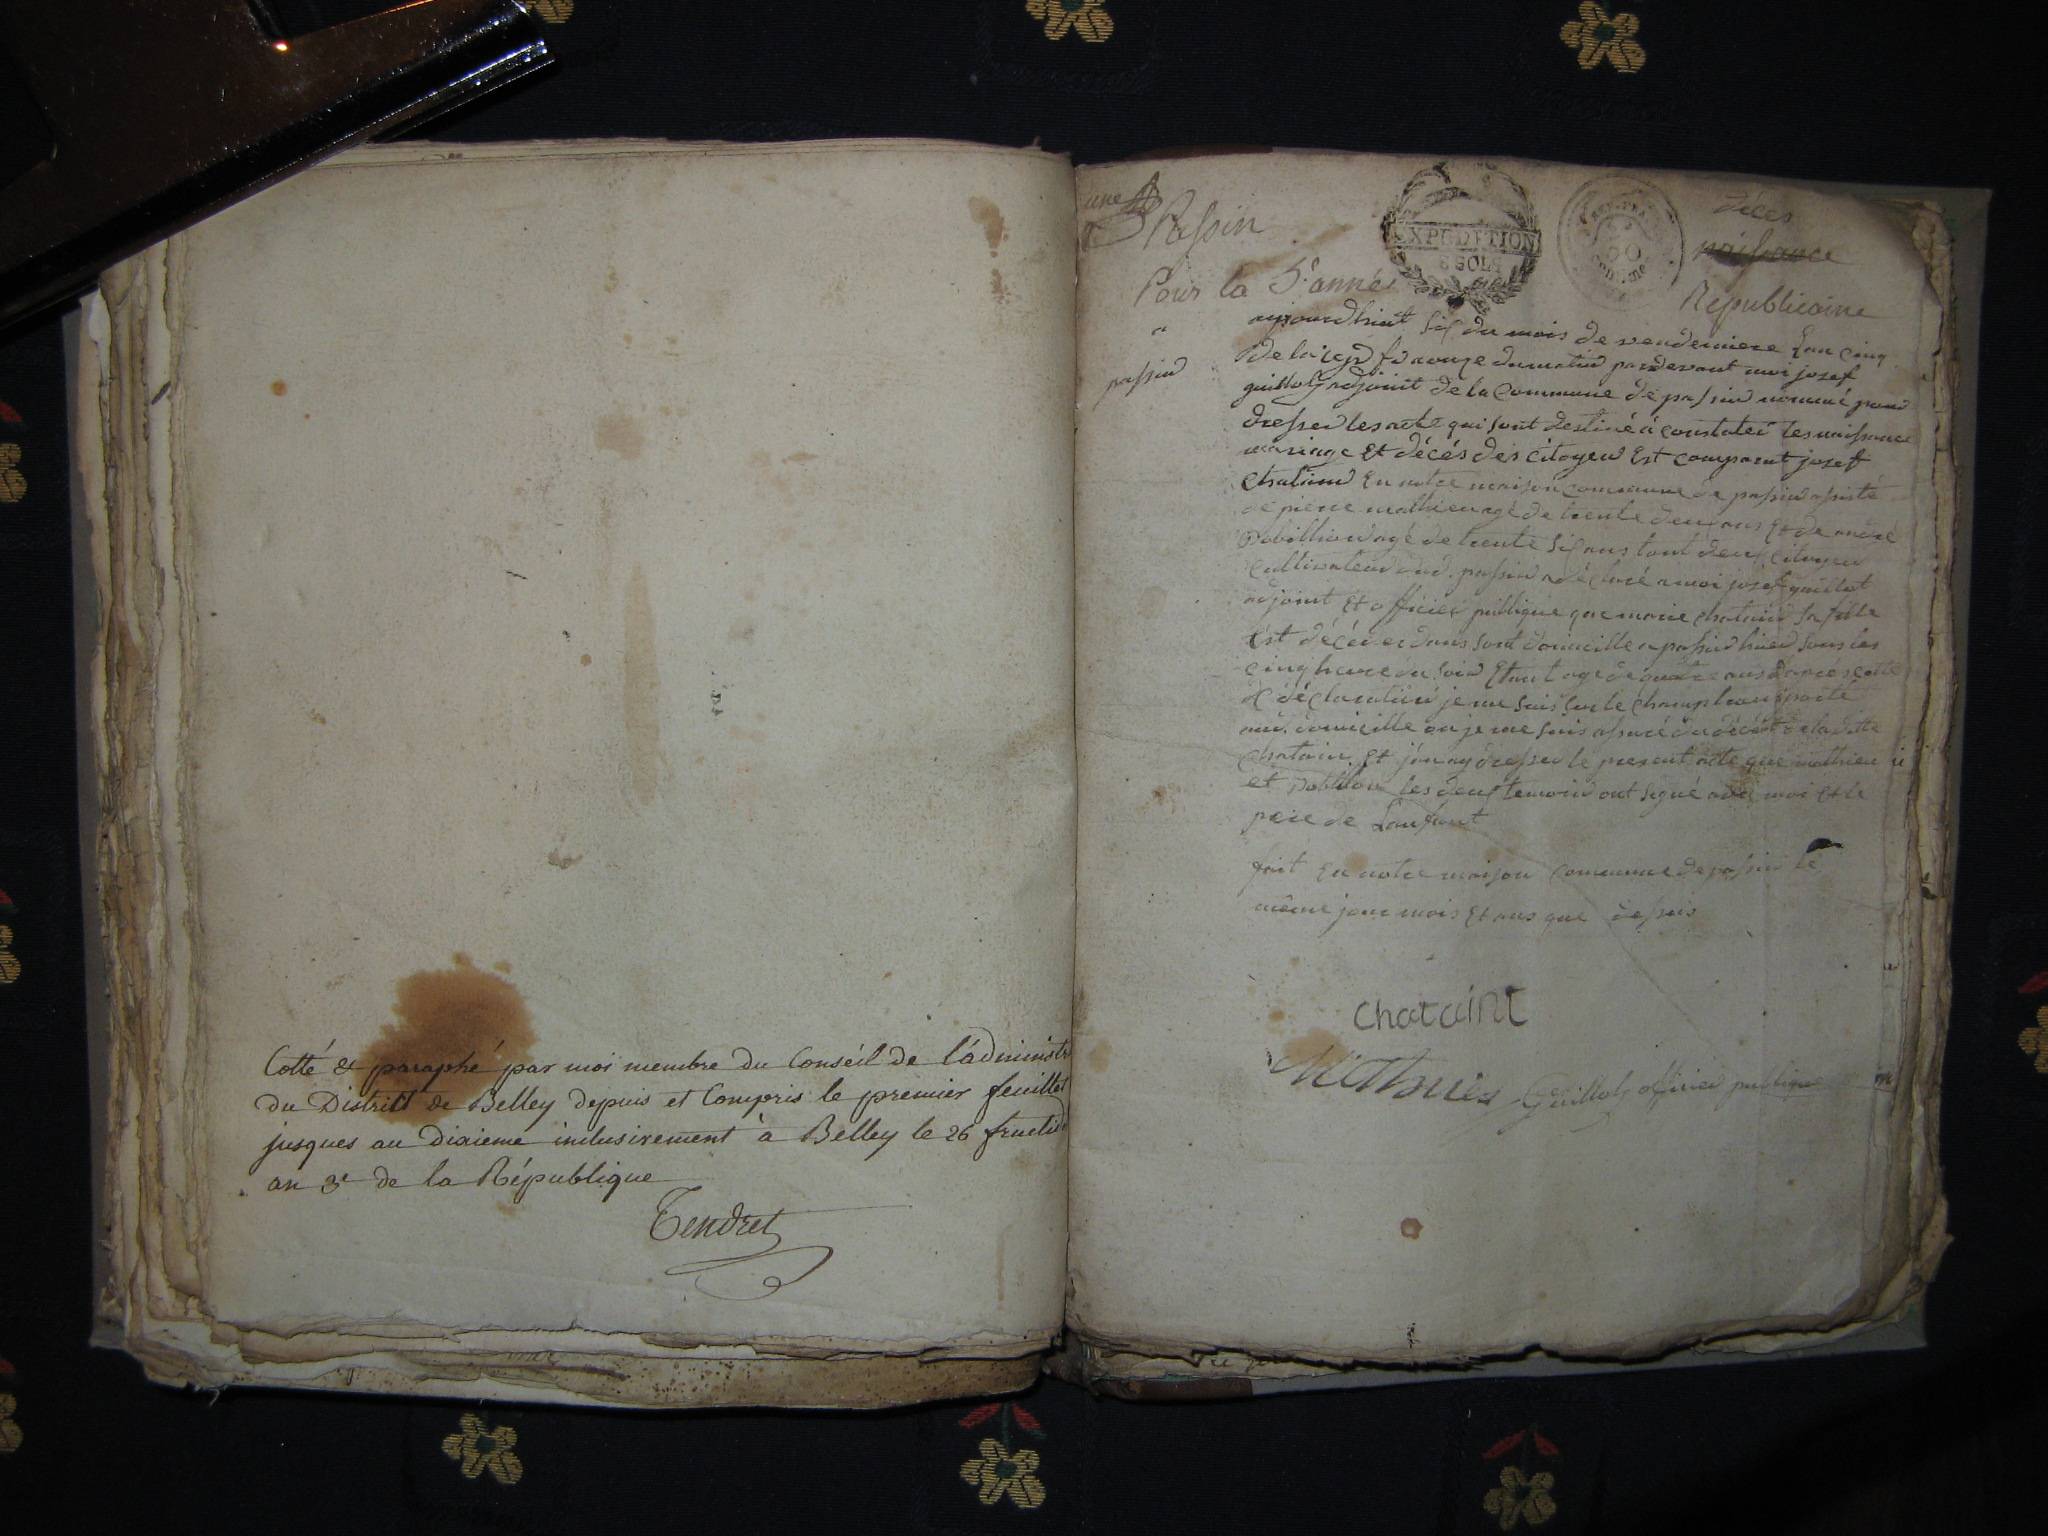 Cotté & paraphé par moi membre du Conséil de l'ádministr
du District de Belley depuis et Compris le premier feuillet
jusques au dixieme inclusivement à Belley le 26 fructid
an 3e de la République
Tendret
une
Passin
EXPEDITION
6 SOLS
50
centime
décès
naissance
Pour la 5e année
Republicaine
passin
aujourdhuit six du mois de vendemiere Lan cinq
de la rep. fr a onze du matin pardevant moi josef
guillot adjoint de la commune de passin nommé pour
dresser les acte qui sont destiné à constater les naissance
mariage et décés des citoyen Est comparut josef
chatain En notre maison commune de passin assisté
de pierre mathieu agé de trente deux ans Et de andré
Pobillion agé de trente six ans tout deux citoyen
cultivateur dud. passin a déclaré a moi josef guillot
adjoint Et officier publique que marie chatain sa fille
Est décédée dans sont domicille a passin hier sous les
cinq heure du soir Etant agé de quatre ans d'aprés cette
déclaration je me suis sur le champ transporté
aud. domicille ou je me suis assuré du décés de la ditte
chatain Et j'en ay dresser le present acte que mathieu
et pobillion les deux temoin ont signé avec moi et le
pere de Lanfant
fait En notre maison commune de passin le
même jour mois Et ans que dessus
chataint
Mathieu Guillot officier publique